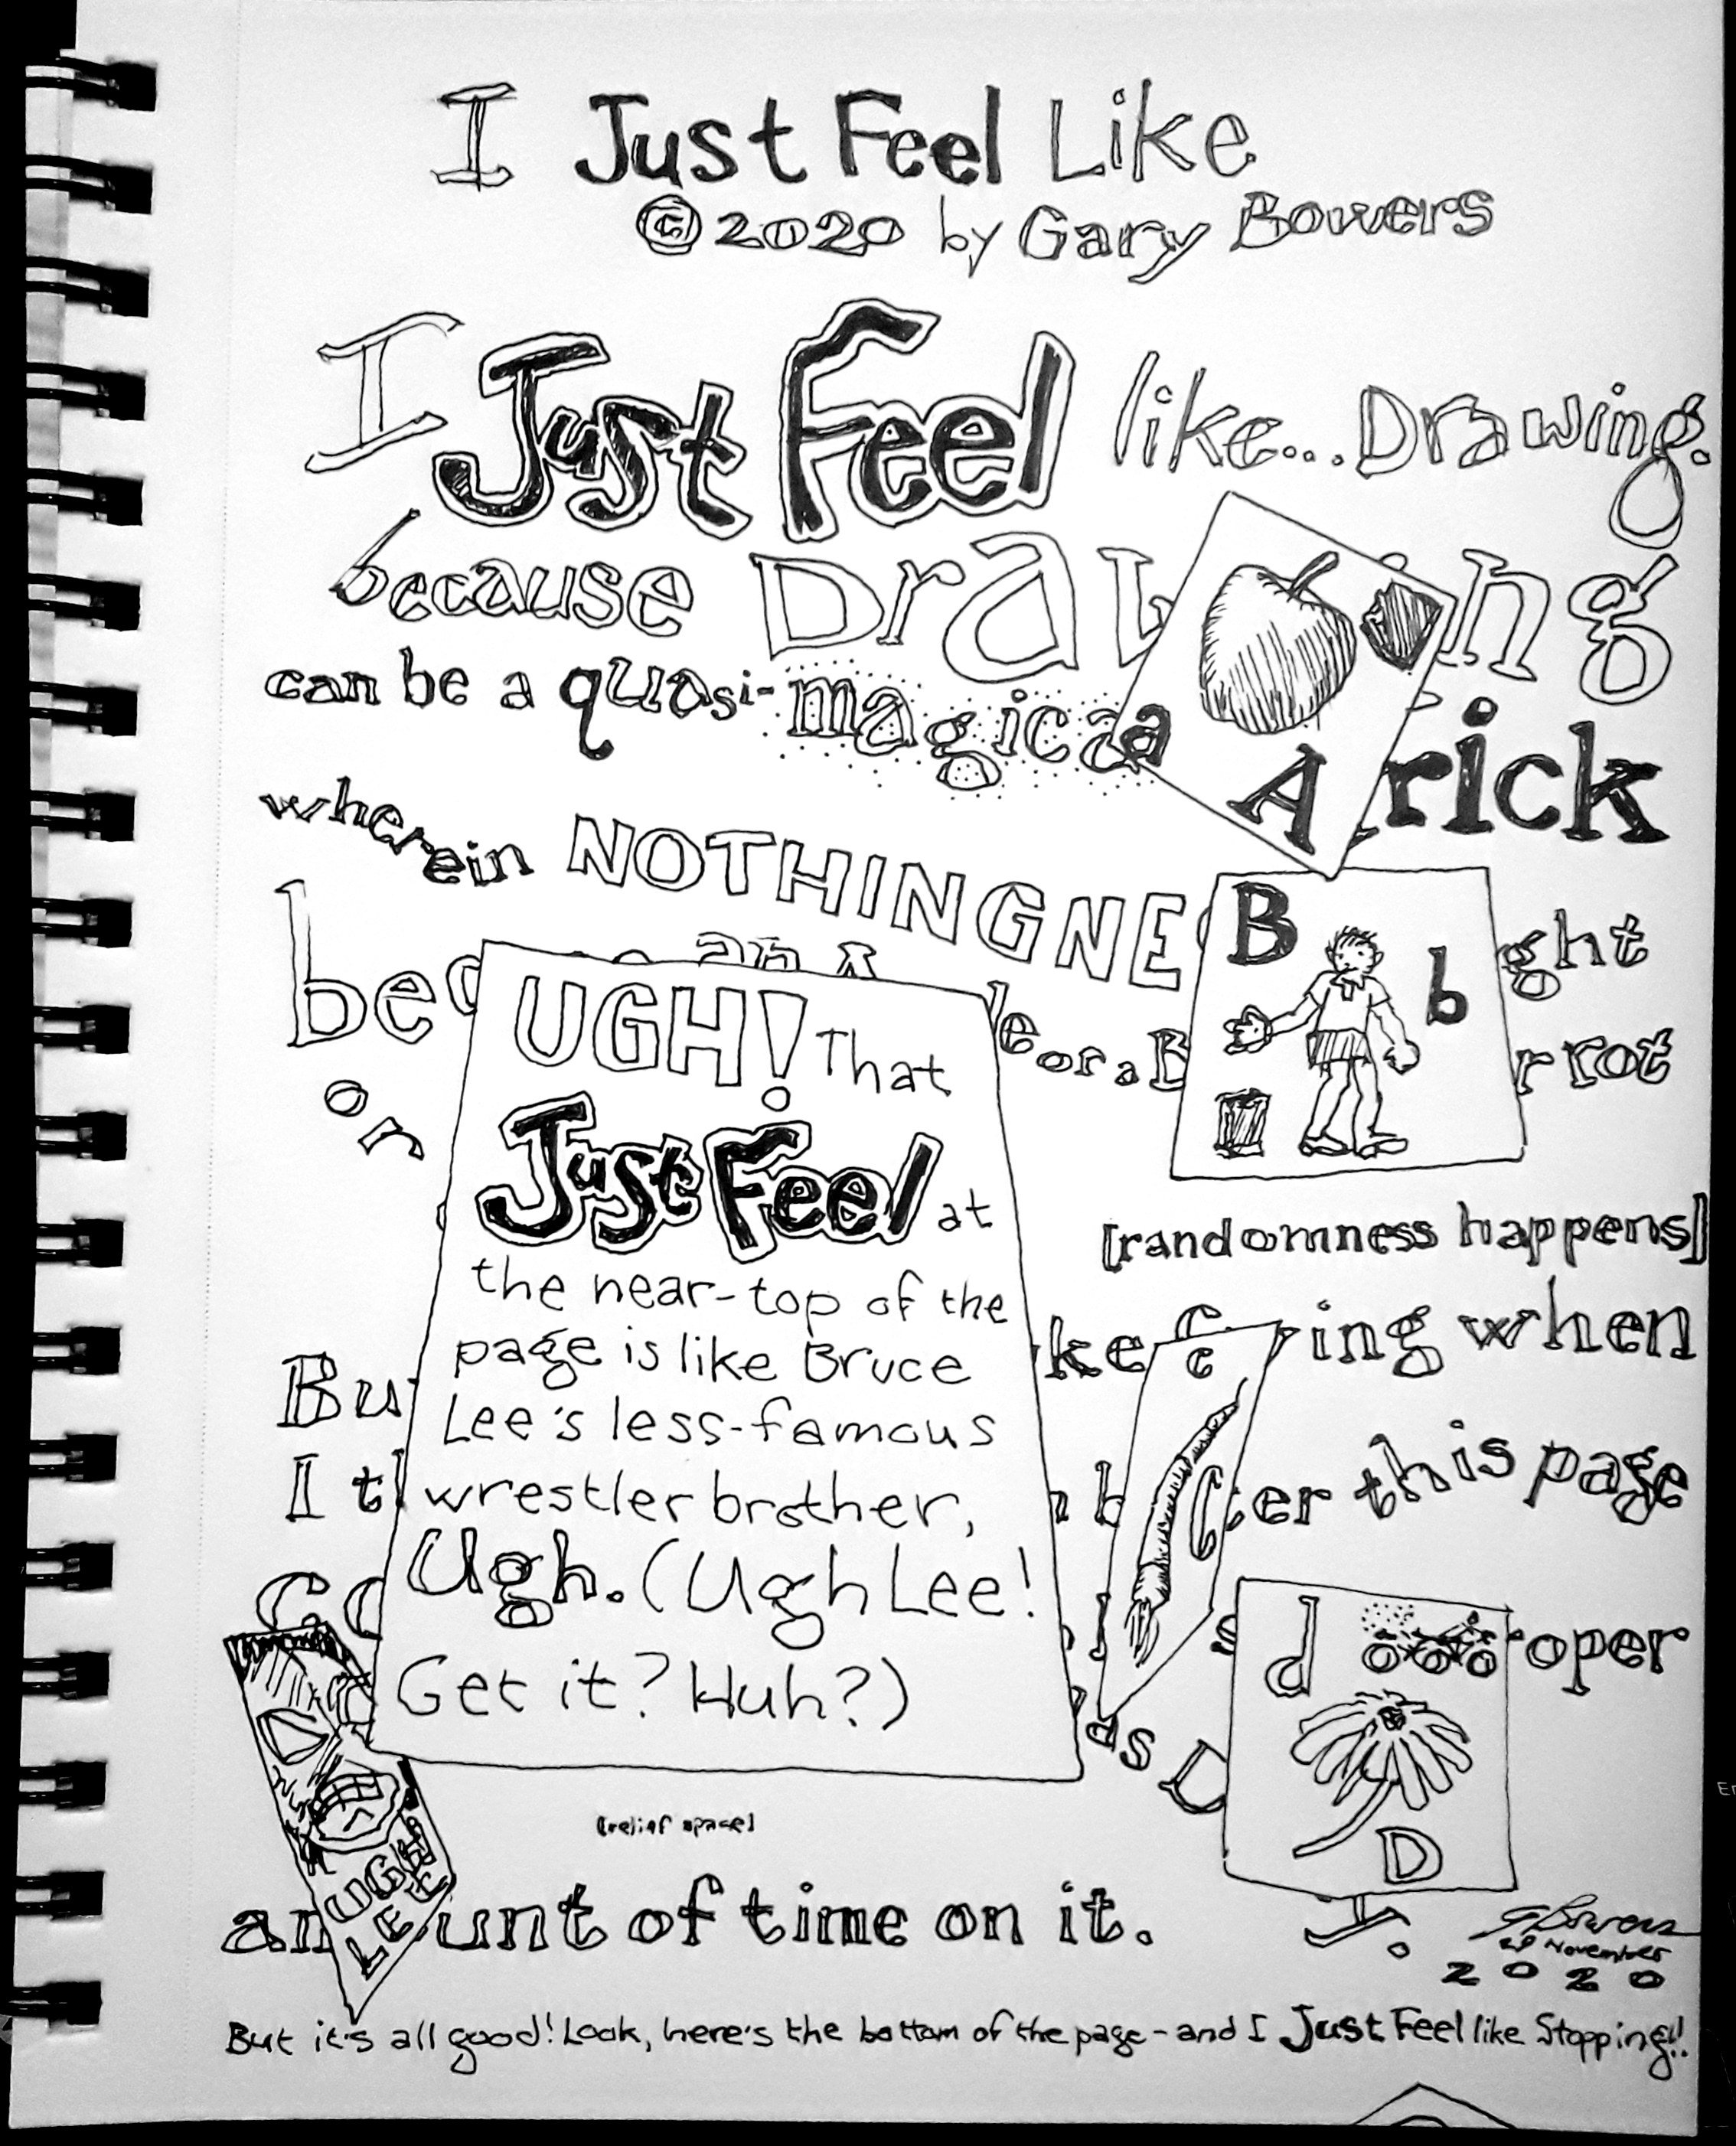 I Just Feel Like
© 2020 by Gary Bowers
I Just Feel like... Drawing.
because Drawing
can be a quasi-magica
a A rick
wherein NOTHINGNE
B b ght
bec
le or a B rrot
on
UGH! That
Just Feel at
the near-top of the
page is like Bruce
Lee's less-famous
wrestler brother,
Ugh. (Ugh Lee!
Get it? Huh?)
[randomness happens]
Bu ke f ing when
c C
I th n b er this page
co s roper
d D
as D
UGH
LEE
[relief space]
am unt of time on it.
I.
GBowers
November
2020
But it's all good! Look, here's the bottom of the page - and I Just Feel like Stopping!!